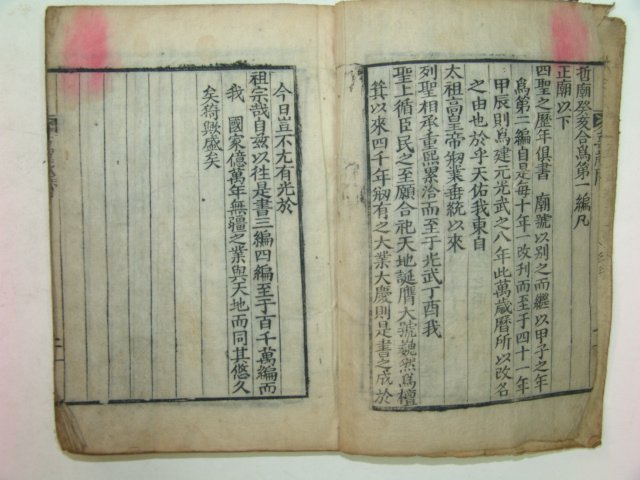 哲廟癸亥合爲第一編凡
正廟以下
四聖之歷年俱書 廟號以別之而繼以甲子之年
爲第二編自是每十年一改刊而至于四十一年
甲辰則爲建元光武之八年此萬歲曆所以改名
之由也於乎天佑我東自
太祖高皇帝刱業垂統以來
列聖相承重熙累洽而至于光武丁酉我
聖上循臣民之至願合祀天地誕膺大號巍然爲檀
箕以來四千年刱有之大業大慶則是書之成於
今日豈不尤有光於
祖宗哉自玆以往是書三編四編至于百千萬編而
我 國家億萬年無疆之業與天地而同其悠久
矣猗歟盛矣